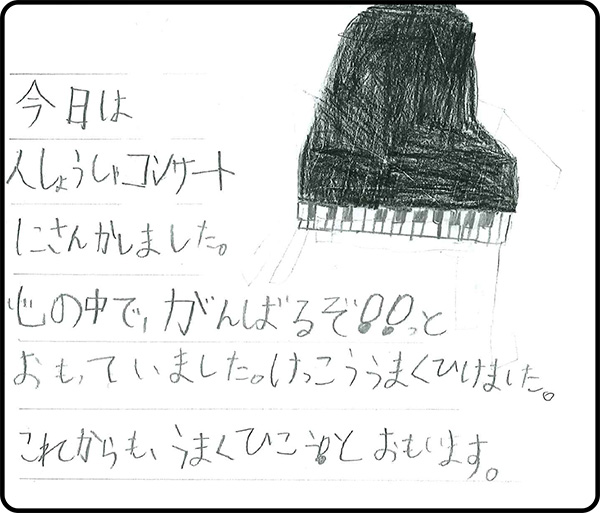 今日は
人しょうしゃコンサート
にさんかしました。
心の中で、がんばるぞ!!っと
おもっていました。けっこううまくひけました。
これからも、うまくひこうとおもいます。